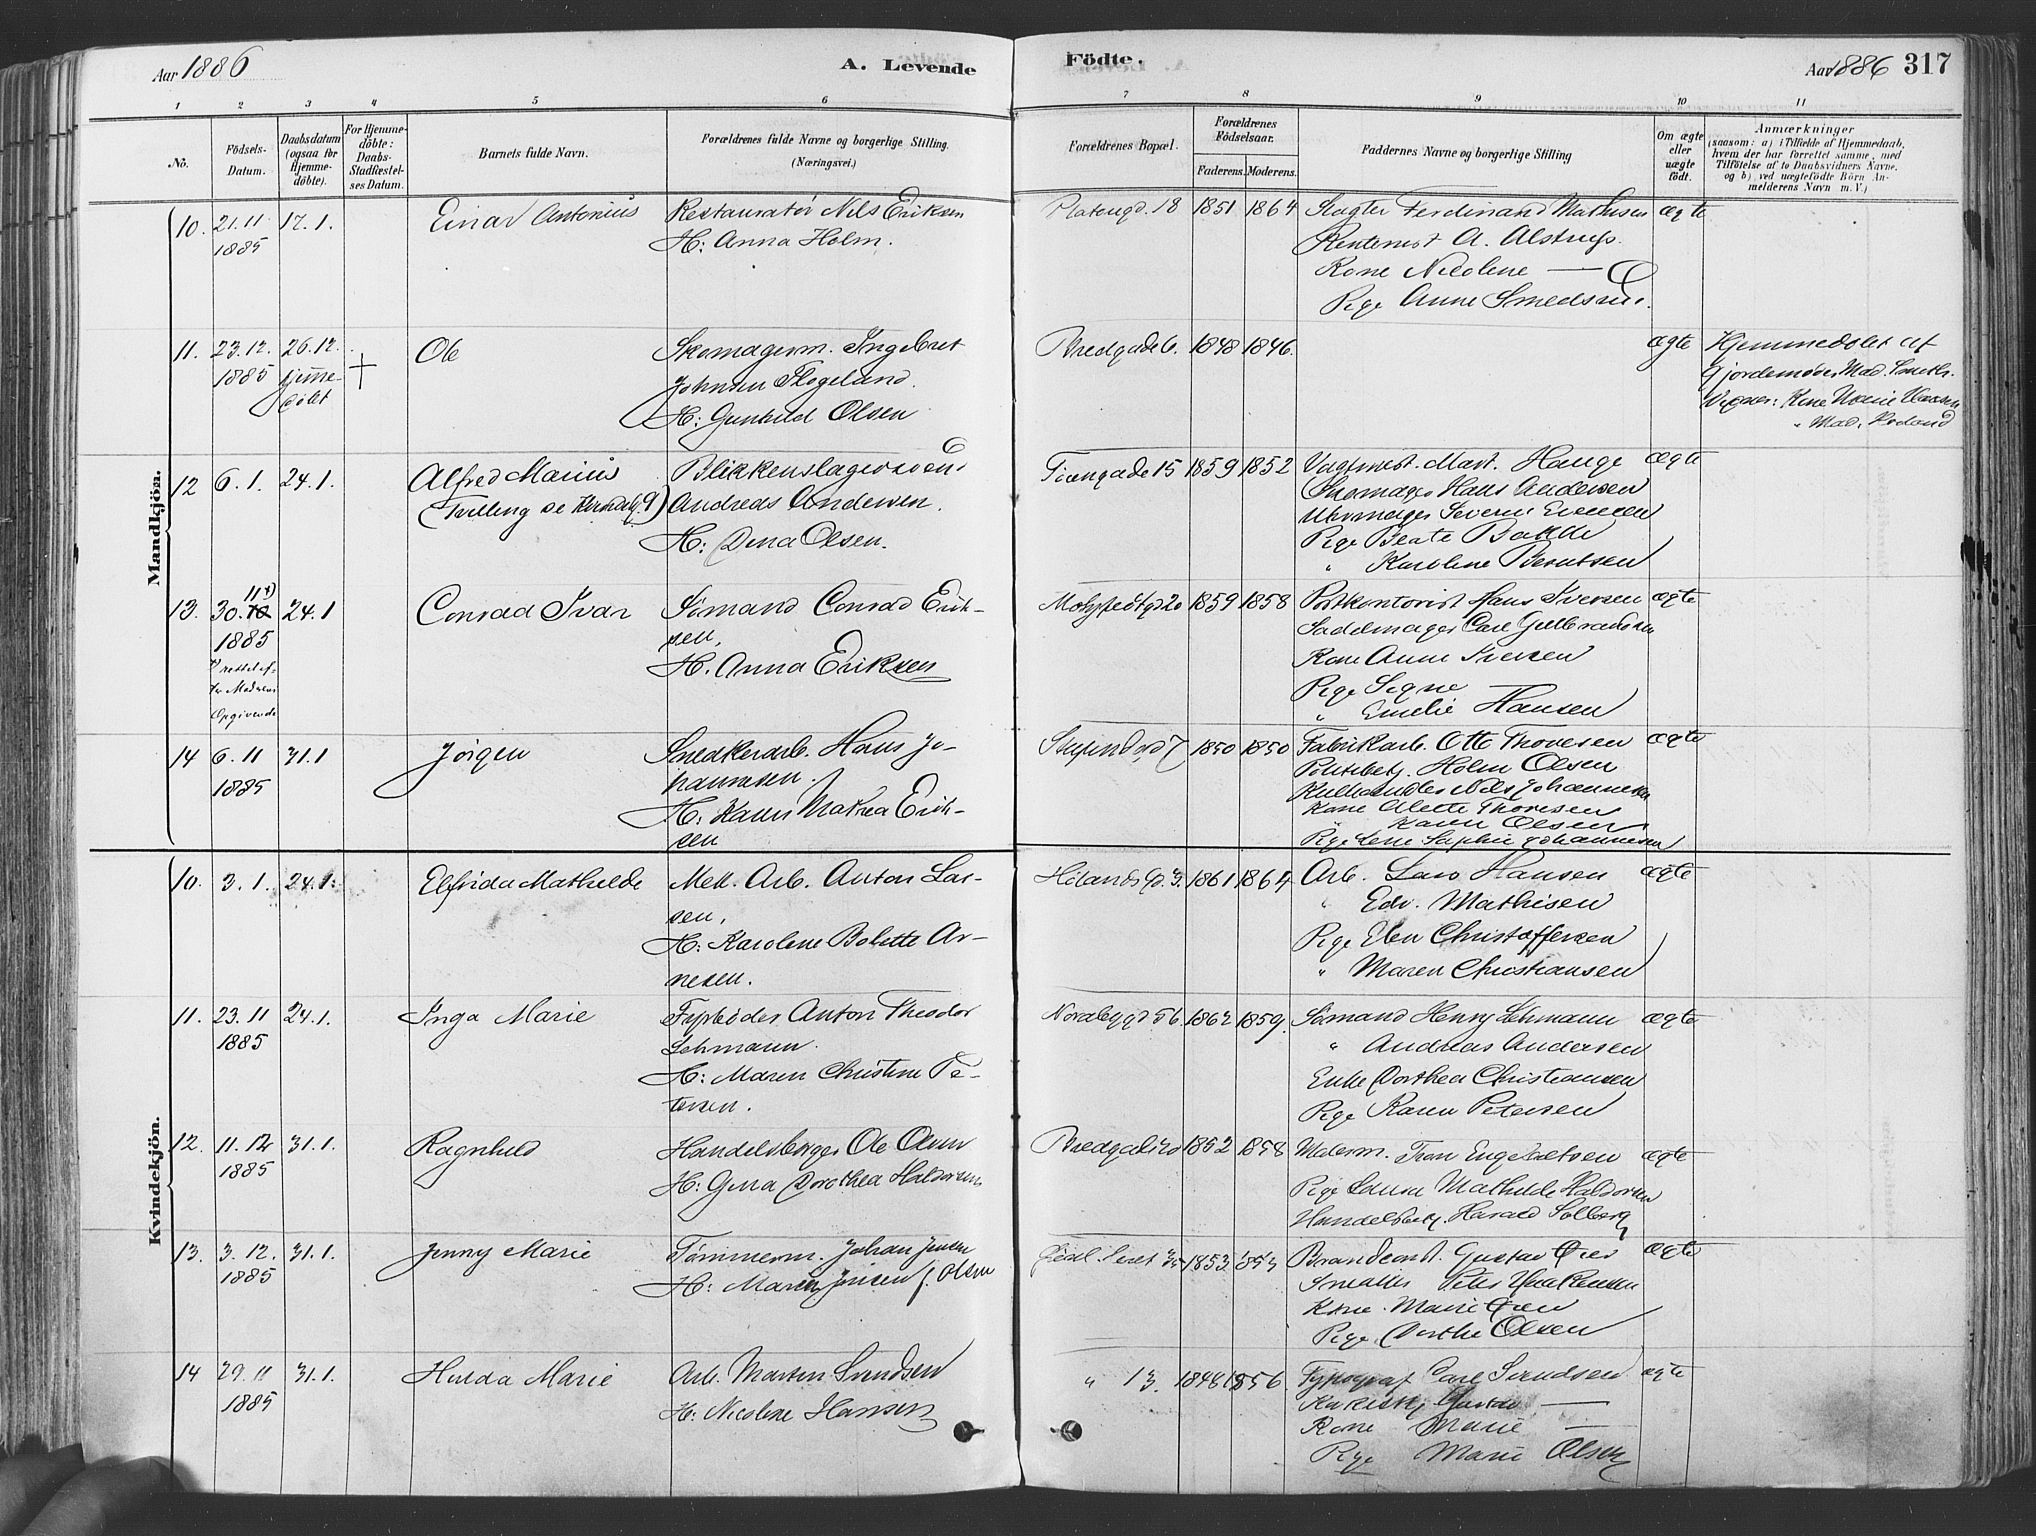 Aar 1886
A. Levende
Födte.
Aar 1886 317
1 2 3 4 5 6 7 8 9 10 11
No.
Födsels-
Datum.
Daabsdatum
(ogsaa for
Hjemme-
döbte).
For Hjemme-
döbte:
Daabs-
Stadfæstel-
ses Datum.
Barnets fulde Navn.
Forældrenes fulde Navne og borgerlige Stilling.
(Næringsvei.)
Forældrenes Bopæl.
Forældrenes
Födselsaar.
Faderens. Moderens.
Faddernes Navne og borgerlige Stilling
Om ægte
eller
uægte
födt.
Anmærkninger
(saasom: a) i Tilfælde af Hjemmedaab,
hvem der har forrettet samme, med
Tilföielse af to Daabsvidners Navne.
og b) ved uægtefödte Börn An-
melderens Navn m. V.)
Mandkjön.
10. 21.11 1885 17.1. Einar Antonius
Restauratör Nils Eriksen
H: Anna Holm.
Platougd. 18 1851 1864
Slagter Ferdinand Mathisen
A. Alstrup.
Kone Nicoline —
Pige Anne Smedsrud.
ægte
11. 23.12. 1885 26.12. hjemme-
döbt
†
Ole
Skomagerm. Ingebret
Johnsen
H: Gunhild Olsen
Bredgade 6. 1848 1846.
ægte
Hjemmedöbt af
Gjordemoder Mad.
Kone Marie
" Mad.
12 6.1. 24.1. Alfred Marius
(Tvilling se Kvindekj. 9)
Blikkenslagersvend
Andreas Andersen.
H: Dina Olsen.
15 1859 1852
Mart. Hauge
Skomager Hans Andersen
Uhrmager Severin Evensen
Pige Beate Bakke
" Karoline Berntsen
ægte
13. 30.11 1885 24.1
Rettet ef-
ter Moderens
Opgivende
Conrad Ivar
Sömand Conrad Erik-
sen.
H. Anna Eriksen
20 1859 1858
Postkontorist Hans Iversen
Sadelmager Carl Gulbrandsen
Kone Anne Iversen
Pige Signe
" Emelie Hansen
ægte
14 6.11 1885 31.1 Jörgen
Snedkerarb. Hans Jo-
hannesen.
H: Karen Mathea Erik-
sen
7 1850 1850
Fabrikarb. Otto Thoresen
Politibetj. Holm Olsen
Kulhandler Nils Johannesen
Kone Alette Thoresen
" Karen Olsen
Pige Lene Sophie Johannesen
ægte
Kvindekjön.
10. 3.1. 24.1. Elfrida Mathilde
Mek. Arb. Anton Lar-
sen.
H: Karoline Bolette Ar-
nesen.
3. 1861 1864
Arb. Lars Hansen
" Edv. Mathisen
Pige Elen Christoffersen
" Maren Christiansen
ægte
11. 23.11 1885 24.1. Inga Marie
Fyrböder Anton Theodor
Lehmann.
H: Maren Christine Pe-
tersen.
Nordbygd. 56. 1862 1859.
Sömand Henry Lehmann
" Andreas Andersen
Enke Dorthea Christiansen
Pige Karen Petersen
ægte
12. 11.12 1885 31.1. Ragnhild
Handelsborger Ole Olsen
H: Gina Dorothea Halvorsen
Bredgade 20 1852 1858
Malerm. Tron Engebretsen
Pige Laura Mathilde Halvorsen
Handelsbetj. Harald Solberg
ægte
13. 3.12. 1885 31.1. Jenny Marie
Tömmerm. Johan Jensen
H: Maren Jensen f. Olsen
1853
Gustav
Kone Marie
Pige Dorthe Olsen
ægte
14 29.11 1885 31.1. Hulda Marie
Arb. Morten Svendsen
H: Nicoline Hansen
" 13. 1848 1856
Typograf Carl Svendsen
—
Kone Marie —
Pige Marie Olsen
ægte